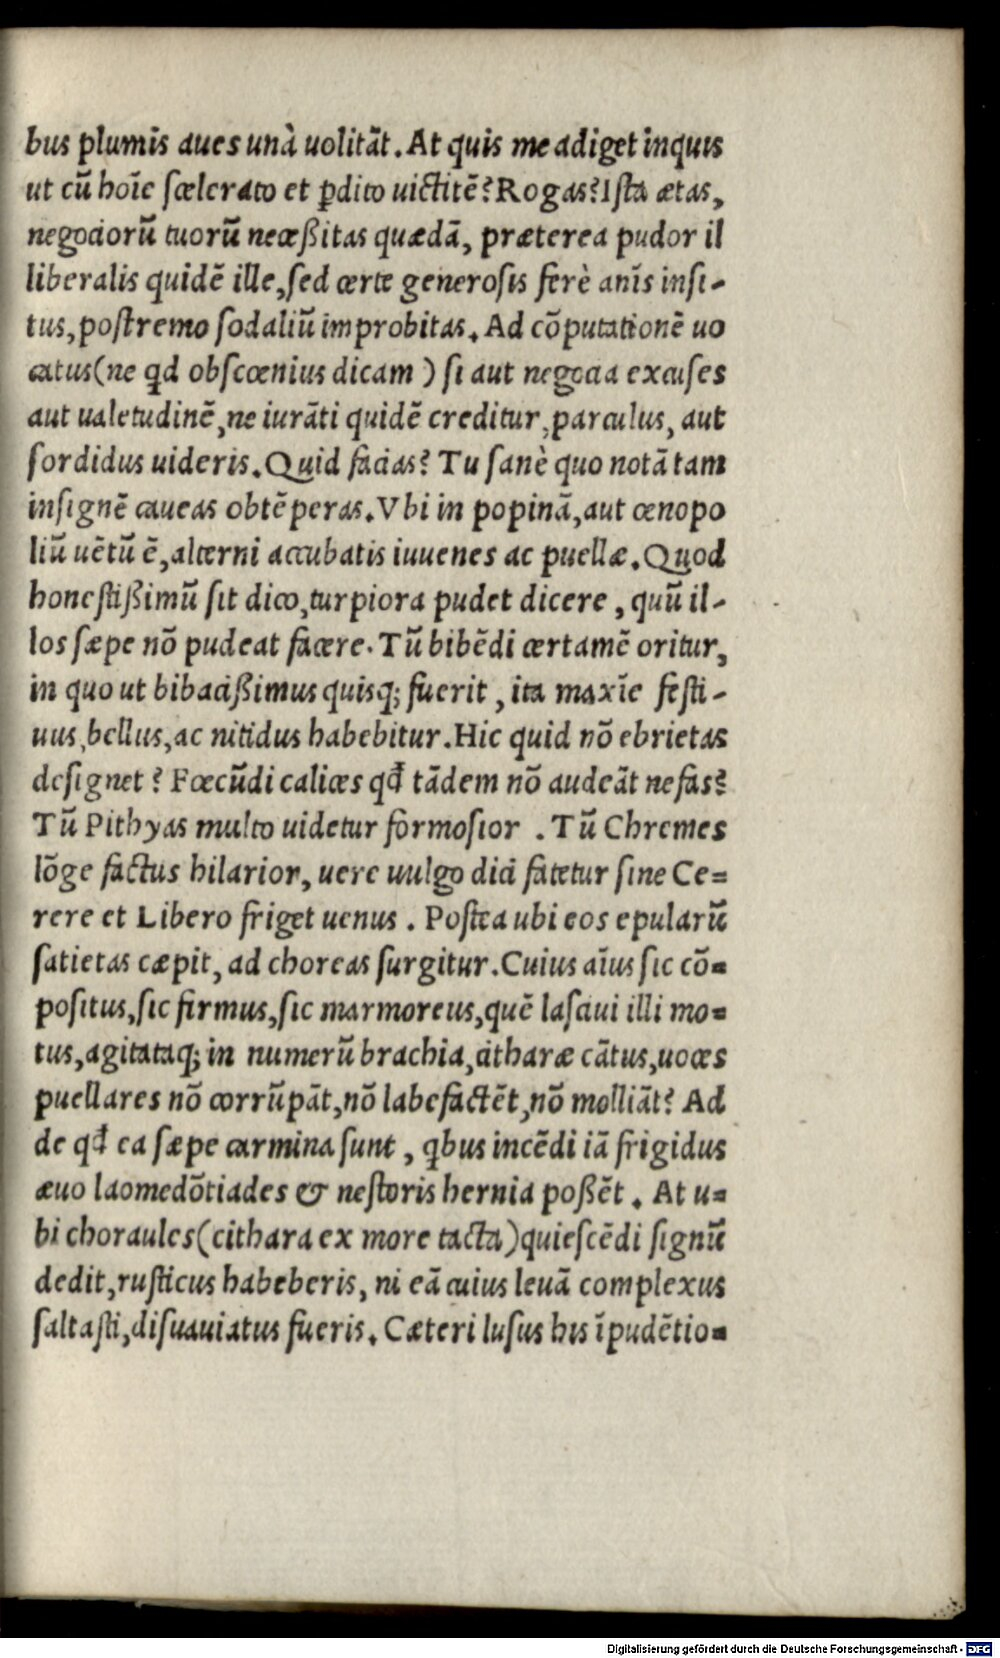 bus plumis aues unà uolitãt. At quis me adiget inquis
ut cũ hoĩe scelerato et ꝑdito uictitẽ? Rogas? Ista ætas,
negociorũ tuorũ neceßitas quædã, præterea pudor il
liberalis quidẽ ille, sed certe generosis ferè anĩs insi-
tus, postremo sodaliũ improbitas. Ad cõputationẽ uo
catus (ne qd obscœnius dicam) si aut negocia excuses
aut ualetudinẽ, ne iurãti quidẽ creditur, parculus, aut
sordidus uideris. Quid facias? Tu sanè quo notã tam
insignẽ caueas obtẽperas. Vbi in popinã, aut œnopo
liũ uẽtũ ẽ, alterni accubatis iuuenes ac puellæ. Quod
honestißimũ sit dico, turpiora pudet dicere, quũ il-
los sæpe nõ pudeat facere. Tũ bibẽdi certamẽ oritur,
in quo ut bibacißimus quisq; fuerit, ita maxĩe festi-
uus, bellus, ac nitidus habebitur. Hic quid nõ ebrietas
designet? Fœcũdi calices qđ tãdem nõ audeãt nefas?
Tũ Pithyas multo uidetur formosior. Tũ Chremes
lõge factus hilarior, uere uulgo dici fatetur sine Ce=
rere et Libero friget uenus. Postea ubi eos epularũ
satietas cæpit, ad choreas surgitur. Cuius aĩus sic cõ=
positus, sic firmus, sic marmoreus, quẽ lasciui illi mo=
tus, agitataq; in numerũ brachia, citharæ cãtus, uoces
puellares nõ corrũpãt, nõ labefactẽt, nõ molliãt? Ad
de qđ ea sæpe carmina sunt, qbus incẽdi iã frigidus
æuo laomedõtiades & nestoris hernia poßẽt. At u=
bi choraules (cithara ex more tacta) quiescẽdi signũ
dedit, rusticus habeberis, ni eã cuius leuã complexus
saltasti, disuauiatus fueris. Cæteri lusus his ĩpudẽtio=
Digitalisierung gefördert durch die Deutsche Forschungsgemeinschaft - DFG